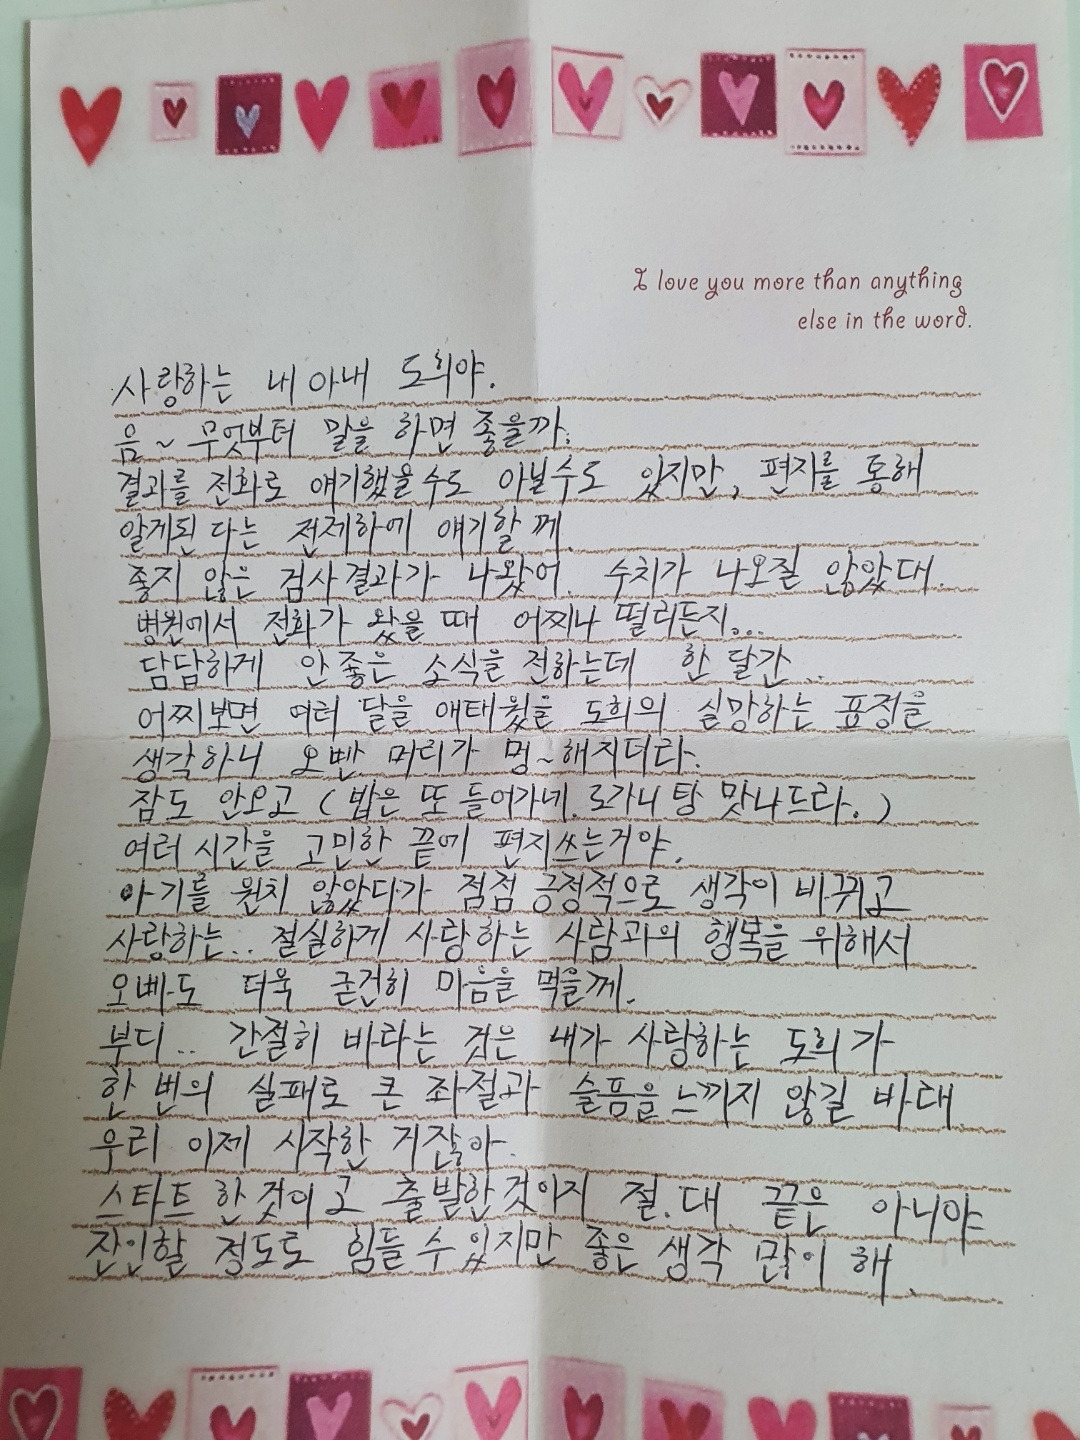 I love you more than anything
else in the word.
사랑하는 내 아내 도희야.
음~ 무엇부터 말을 하면 좋을까.
결과를 전화로 얘기했을수도 아닐수도 있지만, 편지를 통해
알게된다는 전제하에 얘기할께.
좋지 않은 검사결과가 나왔어. 수치가 나오질 않았대.
병원에서 전화가 왔을 때 어찌나 떨리든지...
담담하게 안 좋은 소식을 전하는데 한 달간..
어찌보면 여러 달을 애태웠을 도희의 실망하는 표정을
생각하니 오빤 머리가 멍~해지더라.
잠도 안오고 (밥은 또 들어가네. 도가니탕 맛나드라.)
여러 시간을 고민한 끝에 편지쓰는거야.
아기를 원치 않았다가 점점 긍정적으로 생각이 바뀌고
사랑하는.. 절실하게 사랑하는 사람과의 행복을 위해서
오빠도 더욱 굳건히 마음을 먹을께.
부디.. 간절히 바라는 것은 내가 사랑하는 도희가
한 번의 실패로 큰 좌절과 슬픔을 느끼지 않길 바래
우리 이제 시작한 거잖아.
스타트 한것이고 출발한것이지 절.대 끝은 아니야
잔인할 정도로 힘들 수 있지만 좋은 생각 많이 해.